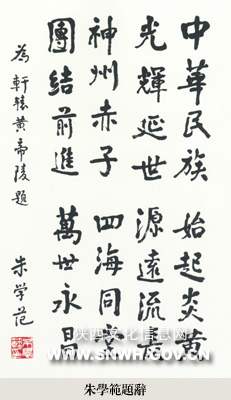 中華民族 始起炎黄
光輝延世 源遠流長
神州赤子 四海同
團結前進 萬世永昌
為軒轅黄帝陵題
朱学范
陕西文化信息网
WWW.SNWH.GOV.CN
朱學範題辭